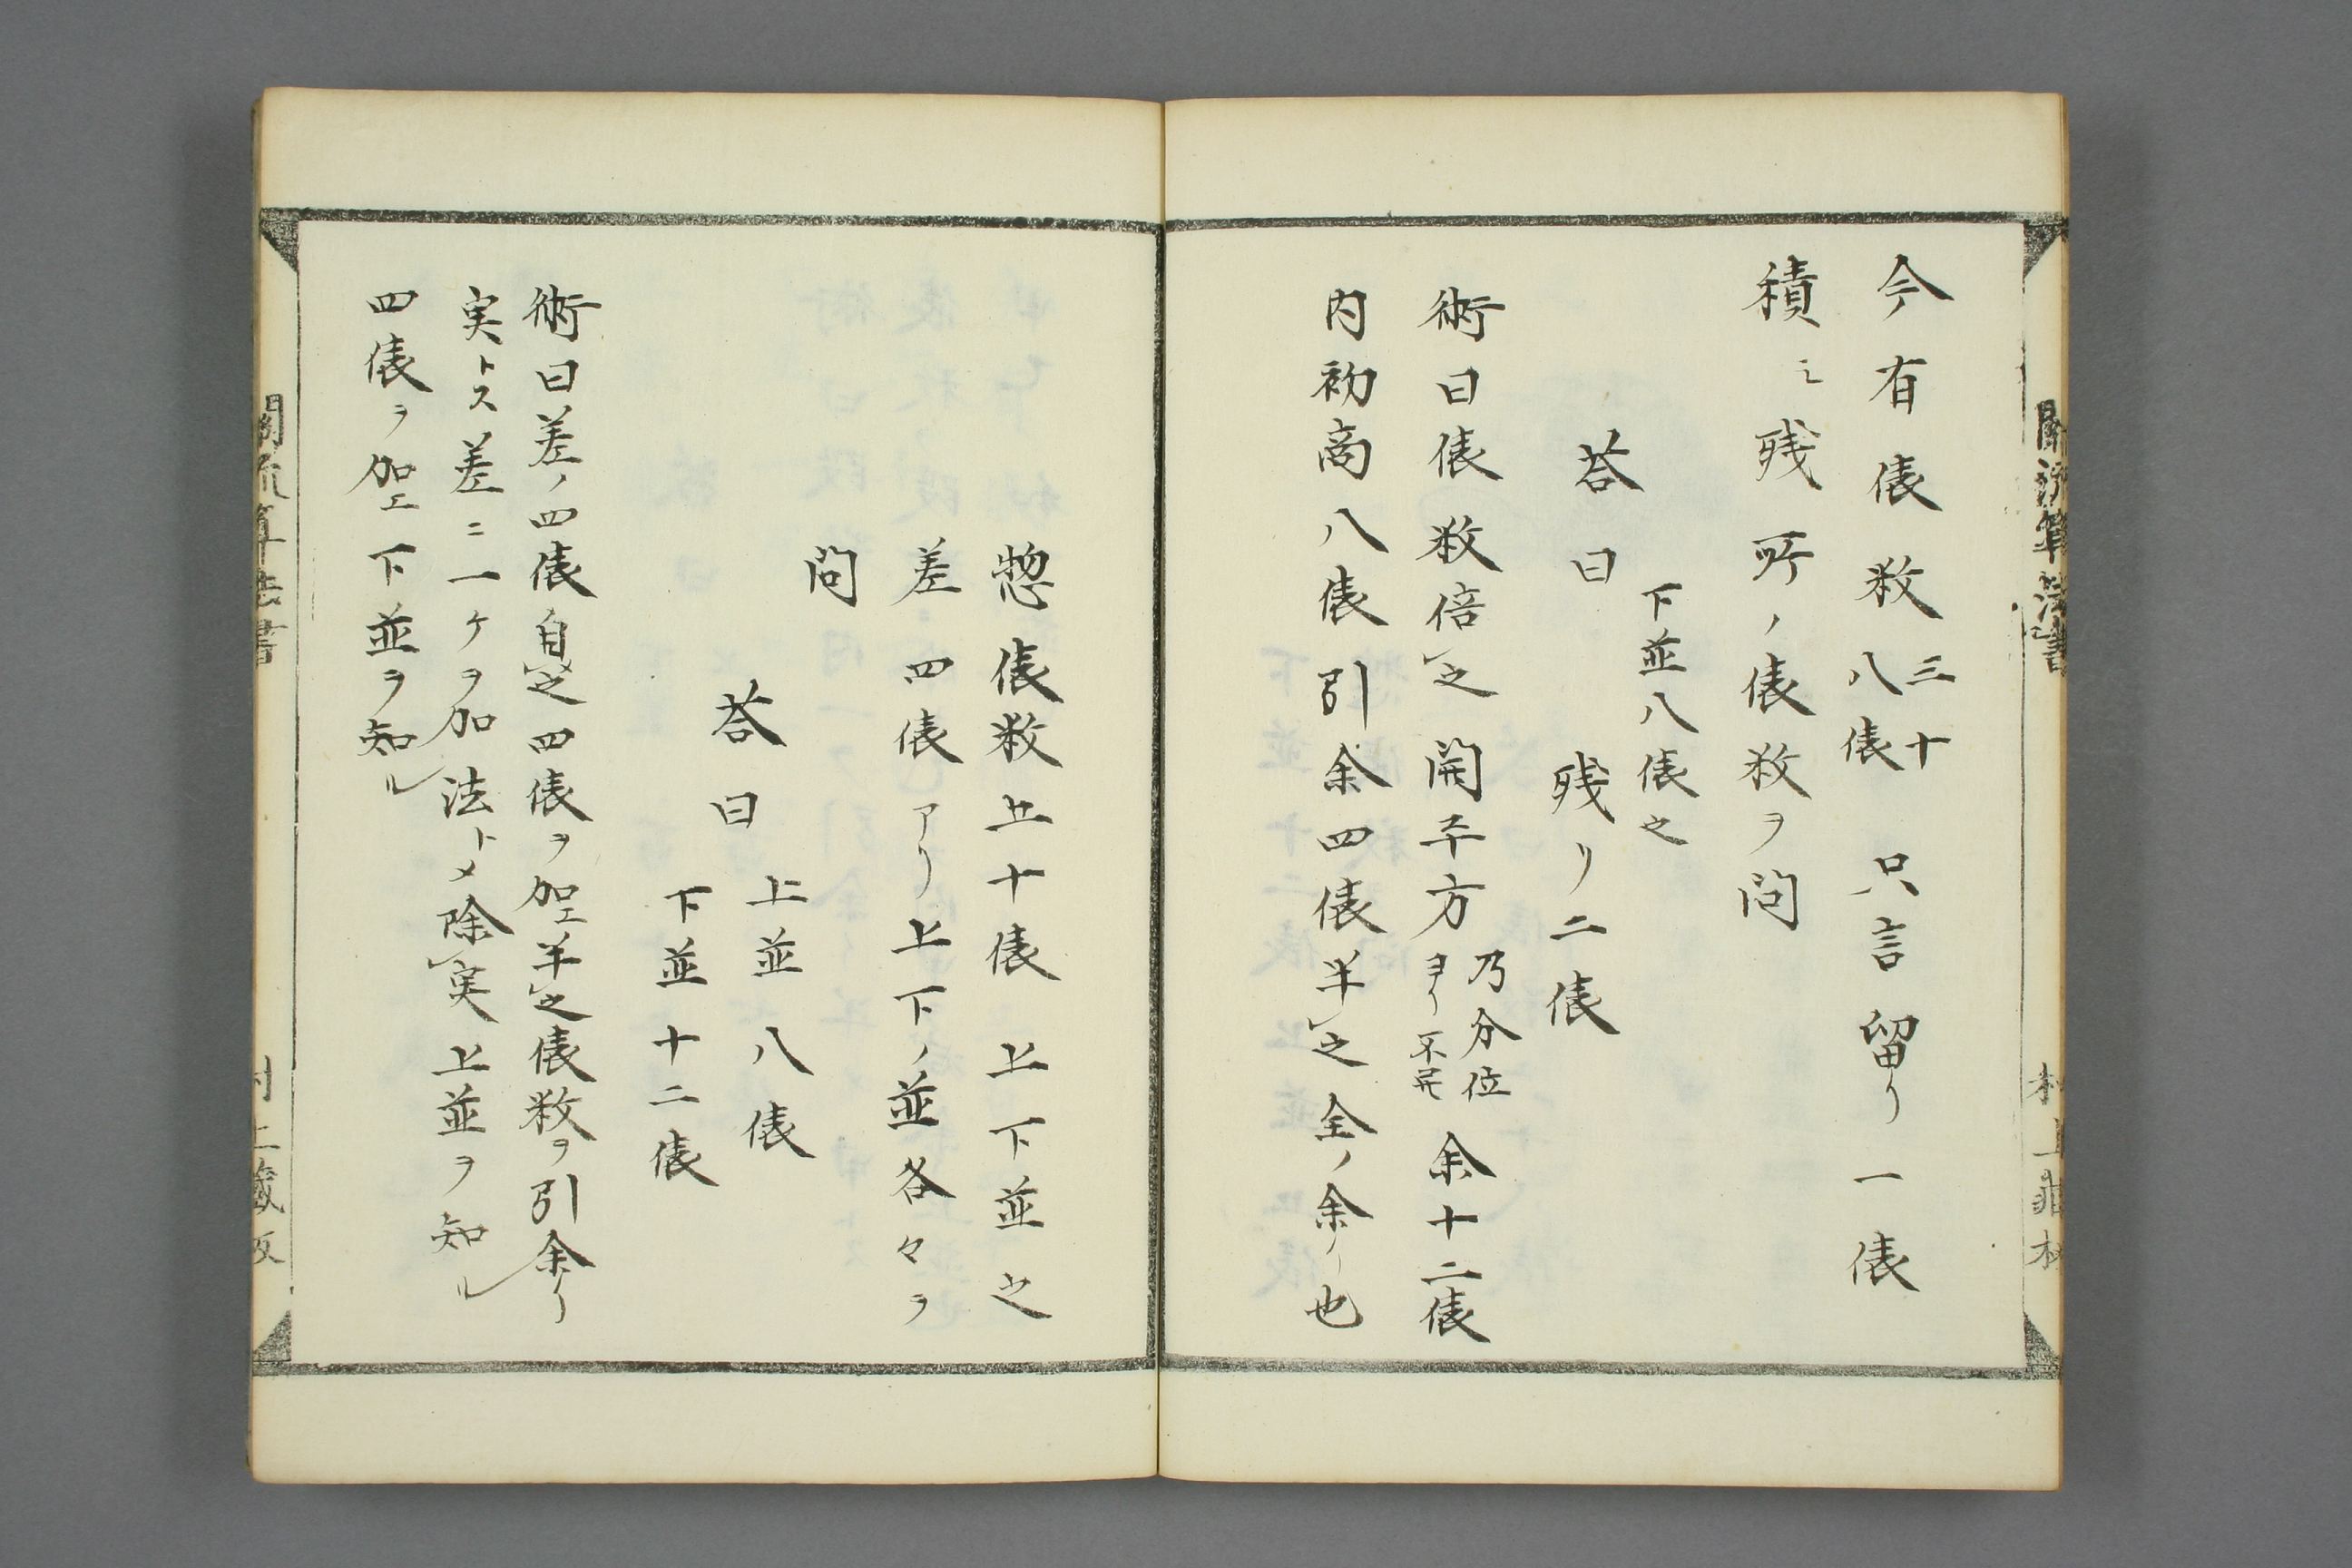 今有俵数三十八俵 只言留リ一俵
積ミ残所ノ俵数ヲ問
答曰
下並八俵之
残リ二俵
術曰俵数倍之開平方乃分位ヨリ不尽余十二俵
内初商八俵引余四俵半之全ノ余リ也
惣俵数五十俵 上下並之
差四俵アリ上下ノ並各々ヲ
問
答曰
上並八俵
下並十二俵
術曰差ノ四俵自之四俵ヲ加エ半之俵数ヲ引余リ
実トス差ニ一ケヲ加法トメ除実上並ヲ知ル
四俵ヲ加エ下並ヲ知ル
関流算法書